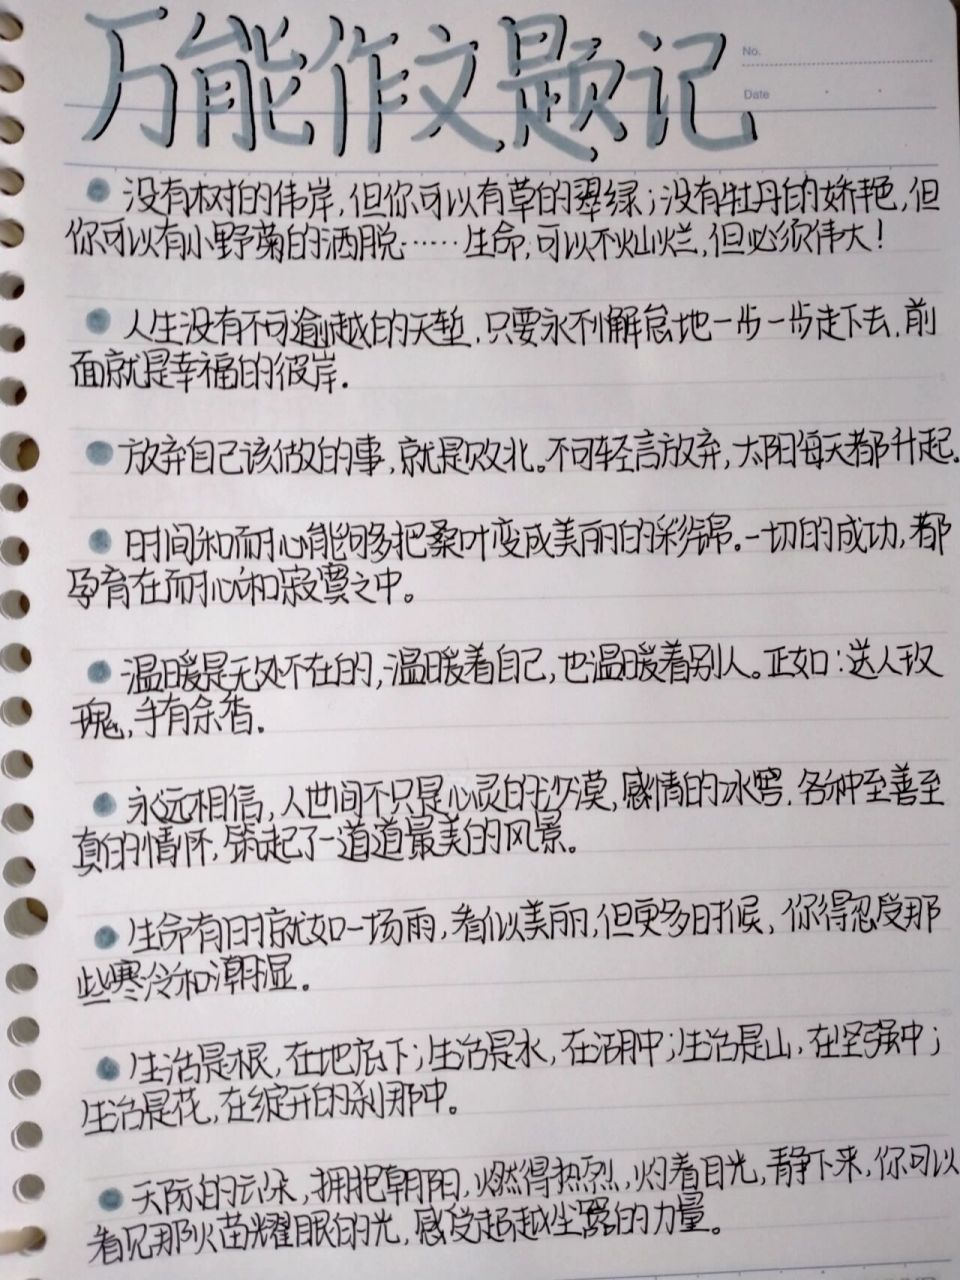 万能作文题记
No.
Date
没有树的伟岸,但你可以有草的翠绿;没有牡丹的娇艳,但
你可以有小野菊的洒脱……生命,可以不灿烂,但必须伟大!
人生没有不可逾越的天堑,只要永不懈怠地一步一步走下去,前
面就是幸福的彼岸.
放弃自己该做的事,就是败北。不可轻言放弃,太阳每天都升起.
时间和耐心能够把桑叶变成美丽的彩锦。一切的成功,都
孕育在耐心和寂寞之中。
温暖是无处不在的,温暖着自己,也温暖着别人。正如:送人玫
瑰,手有余香.
永远相信,人世间不只是心灵的沙漠,感情的冰窖.各种至善至
真的情怀,筑起了一道道最美的风景。
生命有时就如一场雨,看似美丽,但更多时候,你得忍受那
些寒冷和潮湿.
生活是根,在地底下;生活是水,在河中;生活是山,在坚强中;
生活是花,在绽开的刹那中。
天际的云朵,拥抱朝阳,燃得热烈,灼着目光,静下来,你可以
看见那火苗耀眼的光,感受超越尘露的力量。